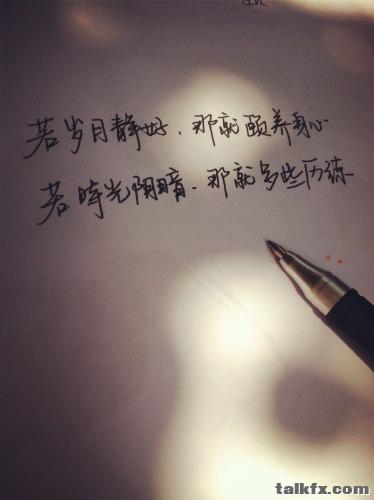 若岁月静好、那就颐养身心
若時光阴暗、那就多些历练
talkfx.com